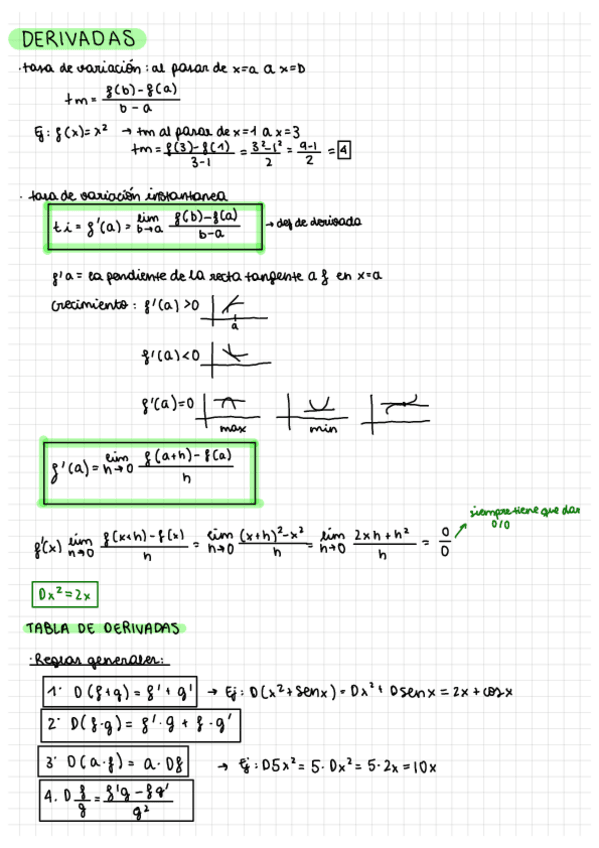 DERIVADAS
· tasa de variación: al pasar de x=a a x=b
tm = f(b)-f(a) / b-a
Ej: f(x)=x² → tm al pasar de x=1 a x=3
tm = f(3)-f(1) / 3-1 = 3²-1² / 2 = 9-1 / 2 = 4
· tasa de variación instantanea
ti = f'(a) = lim b→a f(b)-f(a) / b-a → def de derivada
f'a = la pendiente de la recta tangente a f en x=a
crecimiento: f'(a) >0
a
f'(a)<0
f'(a)=0
max min
f'(a) = lim h→0 f(a+h)-f(a) / h
siempre tiene que dar
0/0
f'(x) lim h→0 f(x+h)-f(x) / h = lim h→0 (x+h)²-x² / h = lim h→0 2xh+h² / h = 0 / 0
Dx²=2x
TABLA DE DERIVADAS
· Reglas generales:
1· D(f+g) = f'+g' → Ej: D(x²+senx) = Dx² + Dsenx = 2x+cosx
2· D(f·g) = f'·g + f·g'
3· D(a·f) = a·Df → Ej: D5x² = 5·Dx² = 5·2x = 10x
4. D f / g = f'g - fg' / g²